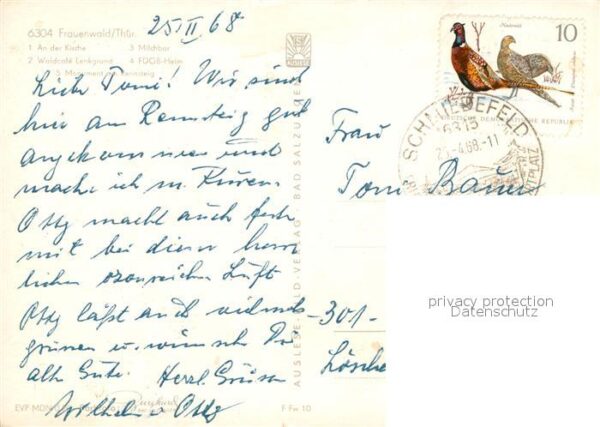 25/II 68
6304 Frauenwald/Thür.
1 An der Kirche 3 Milchbar
2 Waldcafé Lenkgrund 4 FDGB-Heim
5 Monument am Rennsteig
Liebe Toni! Wir sind
hier am Rennsteig gut
angekommen und
mache ich m. Kuren.
Otty macht auch fest
mit bei dieser herr
lichen ozonreichen Luft
Otty läßt auch vielmals
grüssen u. wünscht Dir
alles Gute. Herzl. Grüsse
Wilhelm u. Otty
AUSLESE-BILD-VERLAG BAD SALZUNGEN
F Fw 10
10
DEUTSCHE DEMOKRATISCHE REPUBLIK
SCHMIEDEFELD
6315
-4.68.-11
Frau
Toni Bauer
privacy protection
Datenschutz
-301-